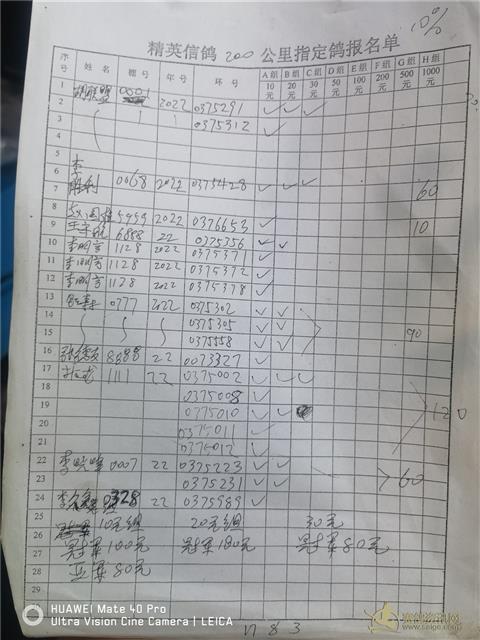 10%
精英信鸽 200 公里指定鸽报名单
序号 姓名 棚号 年号 环号 A组10元 B组20元 C组30元 D组50元 E组100元 F组200元 G组500元 H组1000元
1 胡联盟 0001 2022 0375291 ✓ ✓ ✓
2
3 0375312 ✓
4
5
6 李
7 胜利 0068 2022 0375428 ✓ ✓ ✓ 60
8 5959 2022 0376653 ✓
9 6888 22 0375356 ✓ ✓ 10
10 李明亮 1128 2022 0375371 ✓
11 李明亮 1128 2022 0375372 ✓
12 李明亮 1128 2022 0375378 ✓
13 0777 2022 0375302 ✓ ✓
14 0375305 ✓ ✓ 90
15 0375558 ✓ ✓
16 8888 22 0073327 ✓
17 1111 22 0375002 ✓ ✓ ✓
18 0375008 ✓
19 0775010 ✓ ✓ 120
20 0375011 ✓
21 0375012 ✓
22 李晓峰 0007 22 0375223 ✓ ✓
23 0375231 ✓ ✓ 60
24 0328 22 0375989 ✓
25 10元组 20元组 30元
26 冠军100元 冠军180元 冠军80元
27 亚军80元
28
29
783
HUAWEI Mate 40 Pro
Ultra Vision Cine Camera | LEICA
www.saige.com